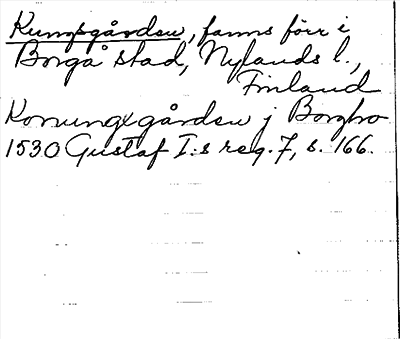 Kungsgården, fanns förr i
Borgå stad, Nylands l.,
Finland
Konungxgården j Borgho
1530 Gustaf I:s reg. 7, s. 166.